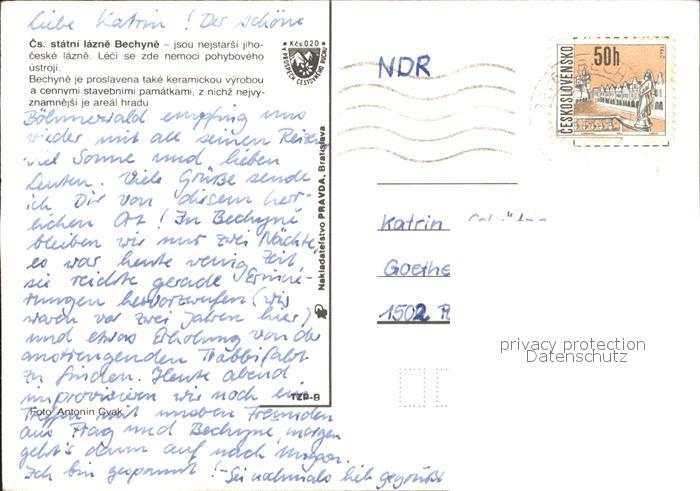 Liebe Katrin! Der schöne
Čs. státní lázně Bechyně – jsou nejstarší jiho-
české lázně. Léčí se zde nemoci pohybového
ústrojí.
Bechyně je proslavena také keramickou výrobou
a cennými stavebními památkami, z nichž nejvý-
znamnější je areál hradu
Böhmerwald empfing uns
wieder mit all seinen Reizen,
viel Sonne und lieben
Leuten. Viele Grüße sende
ich Dir von diesem herr-
lichen Ort! In Bechyně
bleiben wir nur zwei Nächte,
es war heute wenig Zeit,
sie reichte gerade Erinne-
rungen hervorzurufen (wir
waren vor zwei Jahren hier)
und etwas Erholung von der
anstrengenden Trabbifahrt
zu finden. Heute abend
improvisieren wir noch ein
Treffen mit unseren Freunden
aus Prag und Bechyně, morgen
geht's dann auf nach Ungarn.
Ich bin gespannt! – Sei nochmals lieb gegrüßt
Foto Antonín Cvak
TZP-B
Nakladateľstvo PRAVDA, Bratislava
Kčs 0,20
NDR
ČESKOSLOVENSKO
50h
Katrin
Goethe
1502 P
privacy protection
Datenschutz